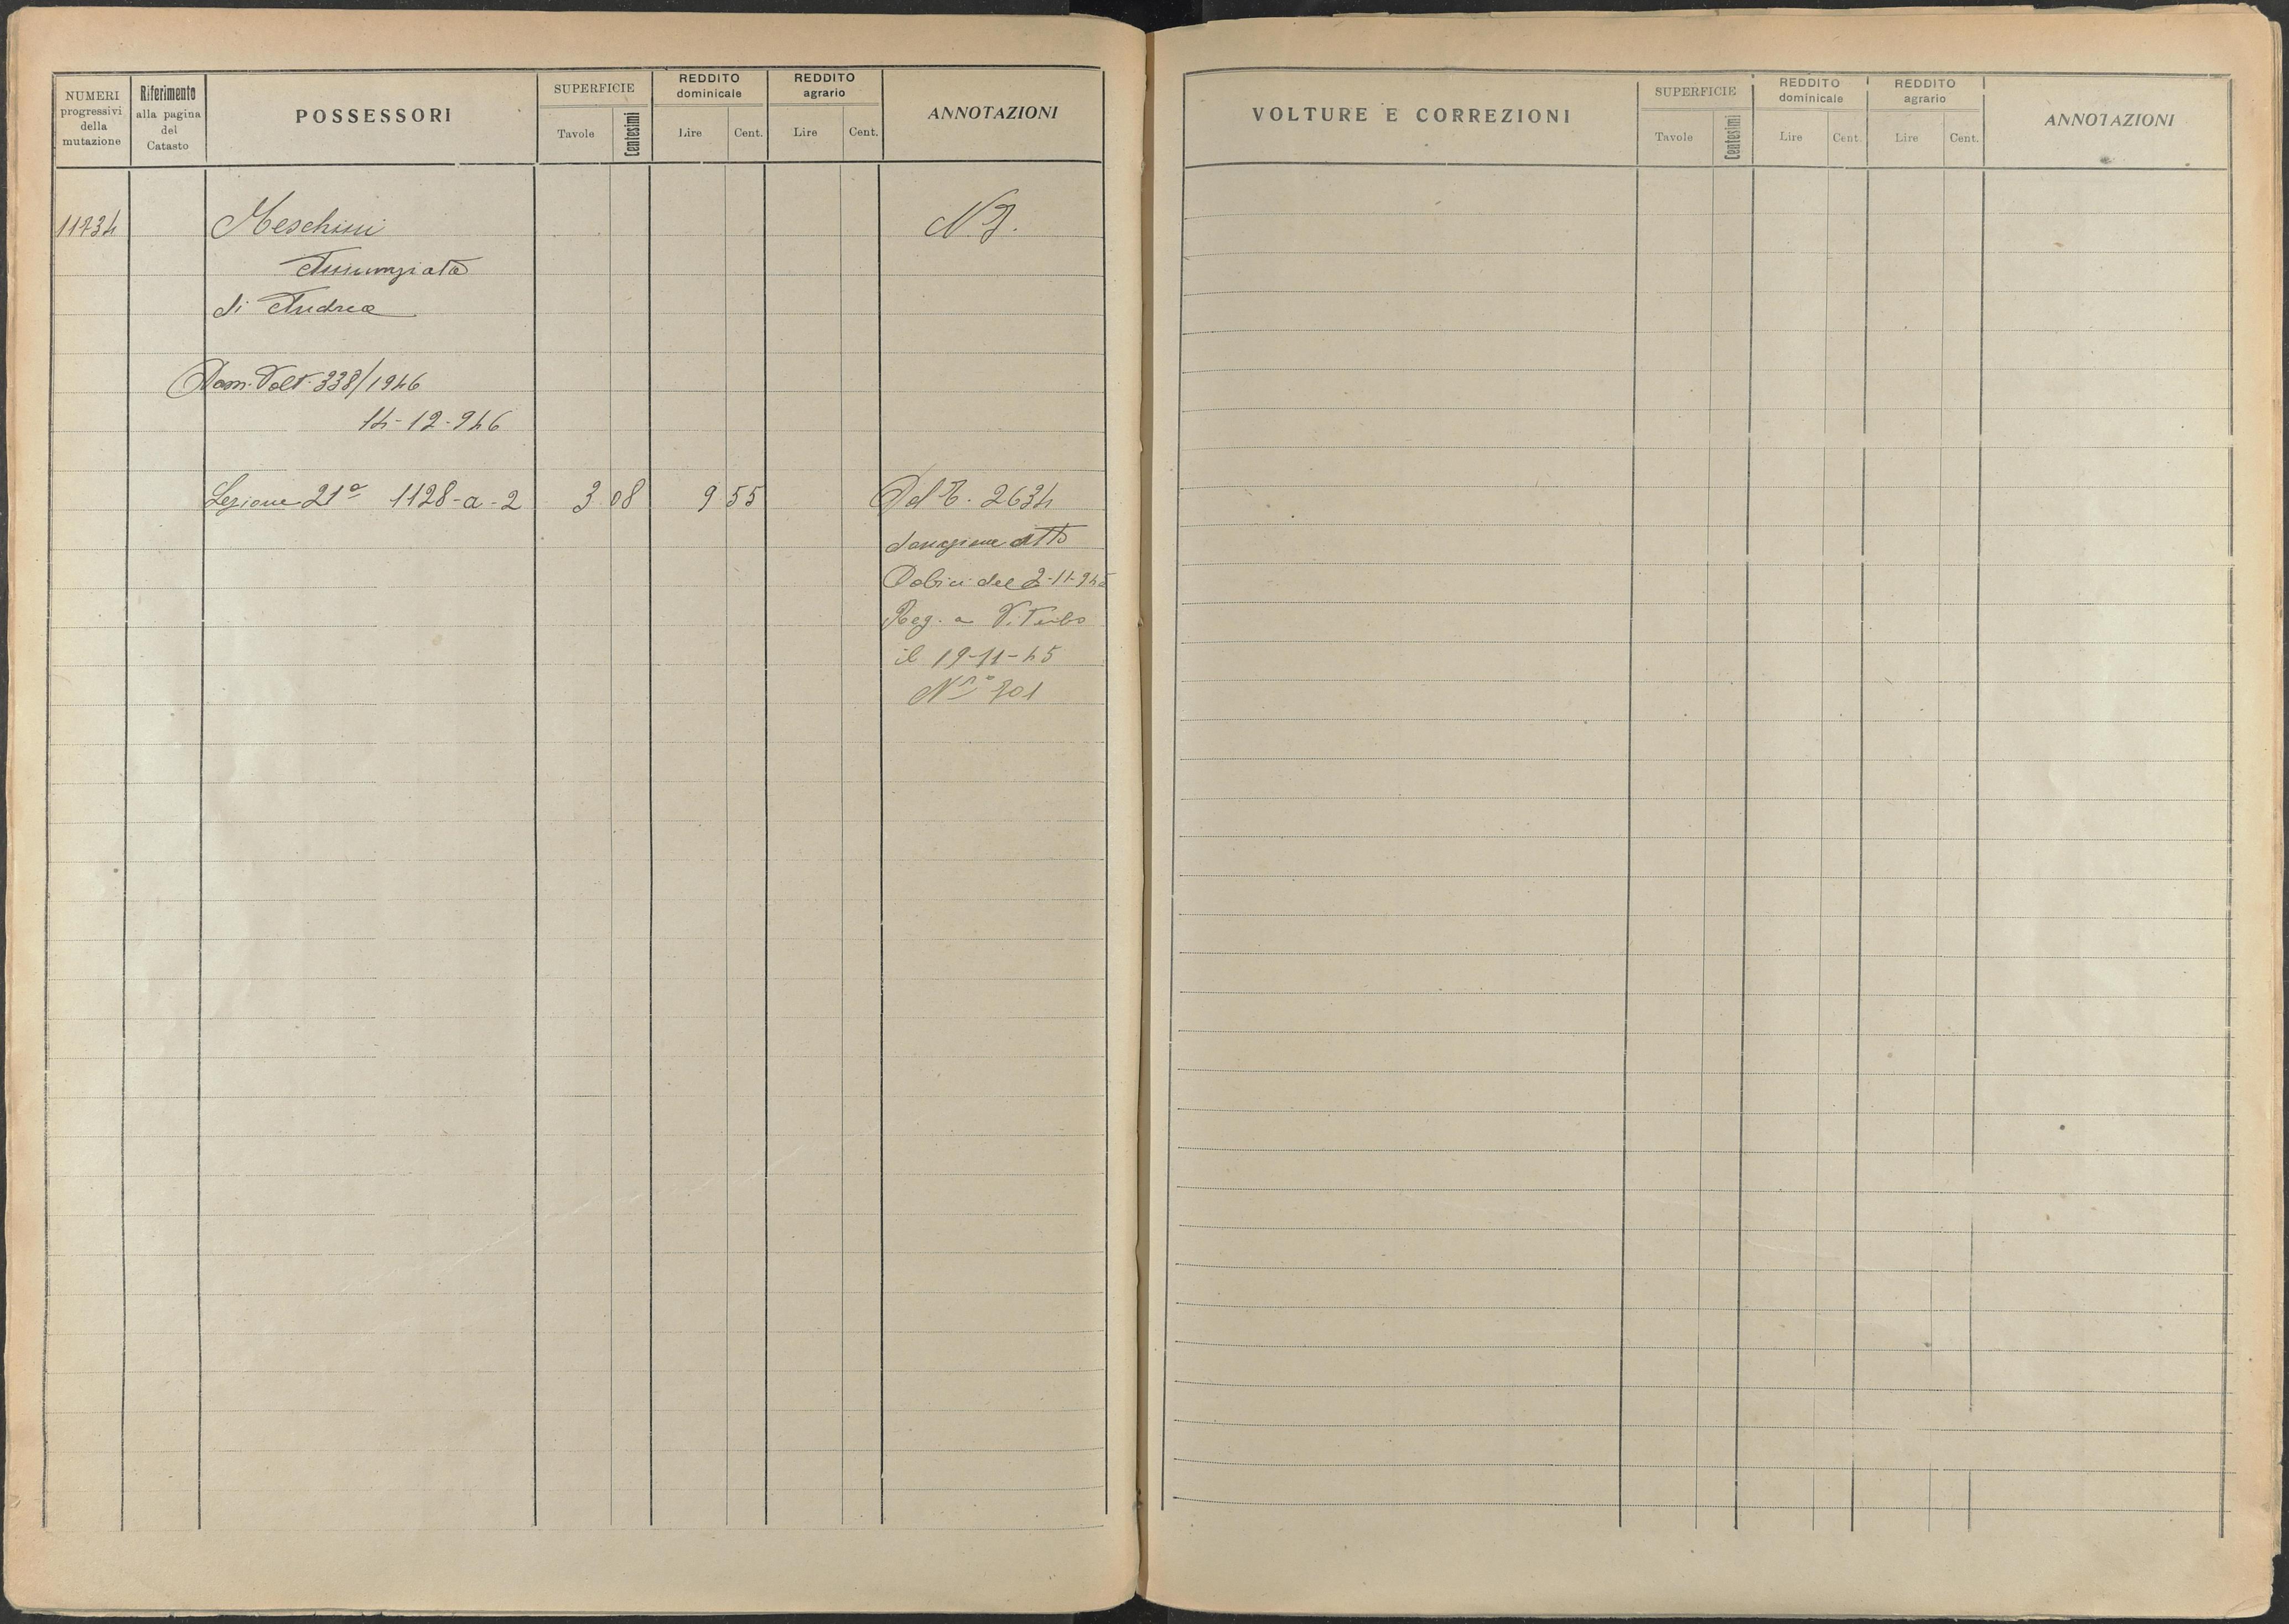 NUMERI
progressivi
della
mutazione
Riferimento
alla pagina
del
Catasto
POSSESSORI
SUPERFICIE
Tavole
Centesimi
REDDITO
dominicale
Lire
Cent.
REDDITO
agrario
Lire
Cent.
ANNOTAZIONI
11734
Meschini
Annunziata
di Andrea
Dom. Volt. 338/1946
14-12-946
Sezione 21ª 1128-a-2
3 08
9 55
N.I.
Dal P. 2634
donazione atto
del 2-11-945
Reg. a Viterbo
il 19-11-45
Nº 701
VOLTURE E CORREZIONI
SUPERFICIE
Tavole
Centesimi
REDDITO
dominicale
Lire
Cent.
REDDITO
agrario
Lire
Cent.
ANNOTAZIONI